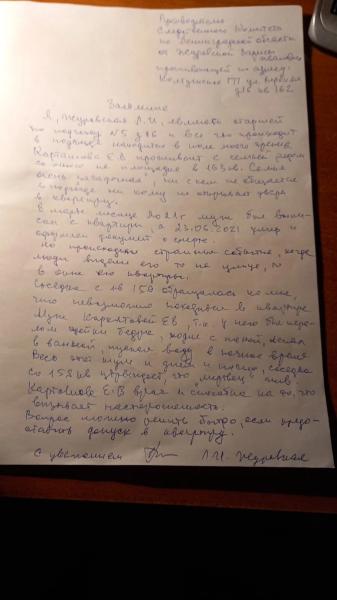 Руководителю
Следственного Комитета
по Ленинградской области
от Журовской Ларисы
Ивановны
проживающей по адресу:
Колтушское ГП ул. Верхняя
д 16 кв 162
Заявление
Я, Журовская Л.И., являюсь старшей
по подъезду N5 д 16 и все что происходит
в подъезде находится в поле моего зрения
Карташова Е.В проживает с семьей рядом
со мной на площадке в 163 кв. Семья
очень загадочная ни с кем не общается
в подъезде никому не открывает дверь
в квартиру.
В марте месяце 2021г муж был выпи-
сан с квартиры, а 23.06.2021 умер и
оформлен документ о смерти.
Но происходили странные события, когда
люди видели его то на улице, то
в окне его квартиры.
Соседка с кв 159 обращалась ко мне,
что невозможно находиться в квартире
Муж Карташовой ЕВ, т.к. у него был пере-
лом шейки бедра, ходил с палкой,
в ванной, пускал воду в ночное время
Весь этот шум и днем и ночью, соседка
со 159 кв утверждает, что "мертвец" жив!
Карташова Е.В врач и способна на то, что
вызывает настороженность.
Вопрос можно решить быстро, если предо-
ставить допуск в квартиру.
С уважением Л.И. Журовская